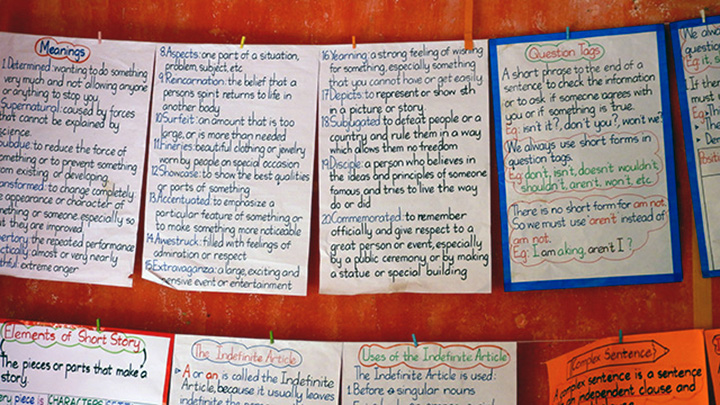 Meanings
1. Determined: wanting to do something
very much and not allowing anyone
or anything to stop you
Supernatural: caused by forces
that cannot be explained by
science.
to reduce the force of
something or to prevent something
from existing or developing
Transformed: to change completely
the appearance or character of
something or someone, especially so
that they are improved
the repeated performance
actically almost or very nearly
thful: extreme anger
8. Aspects: one part of a situation,
problem, subject, etc
9. Reincarnation: the belief that a
persons spirit returns to life in
another body
10. Surfeit: an amount that is too
large, or is more than needed
11. Fineries: beautiful clothing or jewelry
worn by people on special occasion
12. Showcase: to show the best qualities
or parts of something
13. Accentuated: to emphasize a
particular feature of something or
to make something more noticeable
14. Awestruck: filled with feelings of
admiration or respect
15. Extravaganza: a large, exciting and
expensive event or entertainment
16. Yearning: a strong feeling of wishing
for something, especially something
that you cannot have or get easily.
17. Depicts: to represent or show sth
in a picture or story
18. Subjugated: to defeat people or a
country and rule them in a way
which allows them no freedom
19. Disciple: a person who believes in
the ideas and principles of someone
famous, and tries to live the way
do or did
20. Commemorated: to remember
officially and give respect to a
great person or event, especially
by a public ceremony or by making
a statue or special building
Question Tags
A short phrase to the end of a
sentence to check the information
or to ask if someone agrees with
you or if something is true.
Eg: isn't it?, don't you?, won't we?
We always use short forms in
question tags.
Eg: don't, isn't, doesn't wouldn't,
shouldn't, aren't, won't, etc
There is no short form for am not.
So we must use 'aren't' instead of
am not.
Eg: I am aking, aren't I?
We alw
quest
Eg: it, s
If the
must
Eg:
Elements of Short Story
The pieces or parts that make a
story.
ery piece is CHARACTERS
The Indefinite Article
A or an is called the Indefinite
Article, because it usually leaves
indefinite the
Uses of the Indefinite Article
The Indefinite Article is used:
1. Before a singular nouns
Complex Sentence
A complex sentence is a sentence
an independent clause and